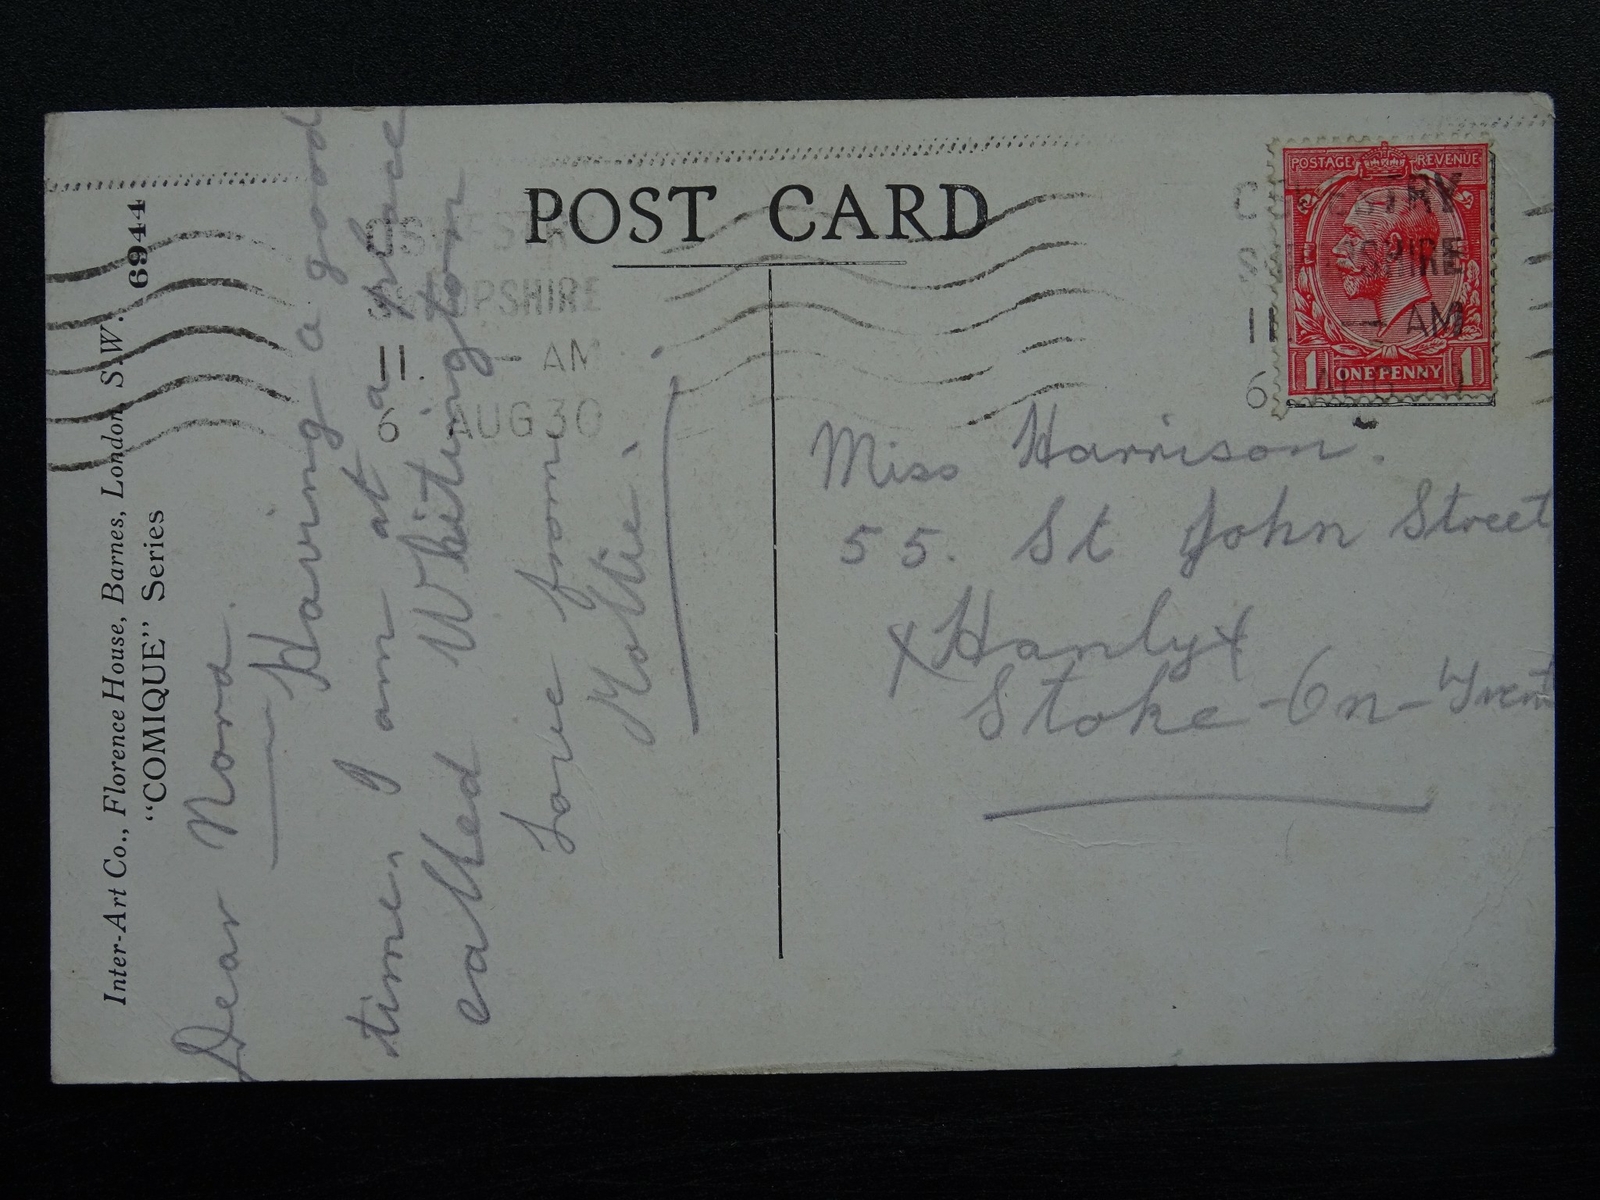 POST CARD
Inter-Art Co., Florence House, Barnes, London, S.W. 6944
"COMIQUE" Series
Dear Nora.
Having a good
time. I am at a place
called Whitington
Love from
Mollie.
SHROPSHIRE
11. - AM
6 AUG 30
POSTAGE REVENUE
1 ONE PENNY 1
SHIRE
11 - AM
6
Miss Harrison.
55. St John Street
x Hanly x
Stoke-On-Trent